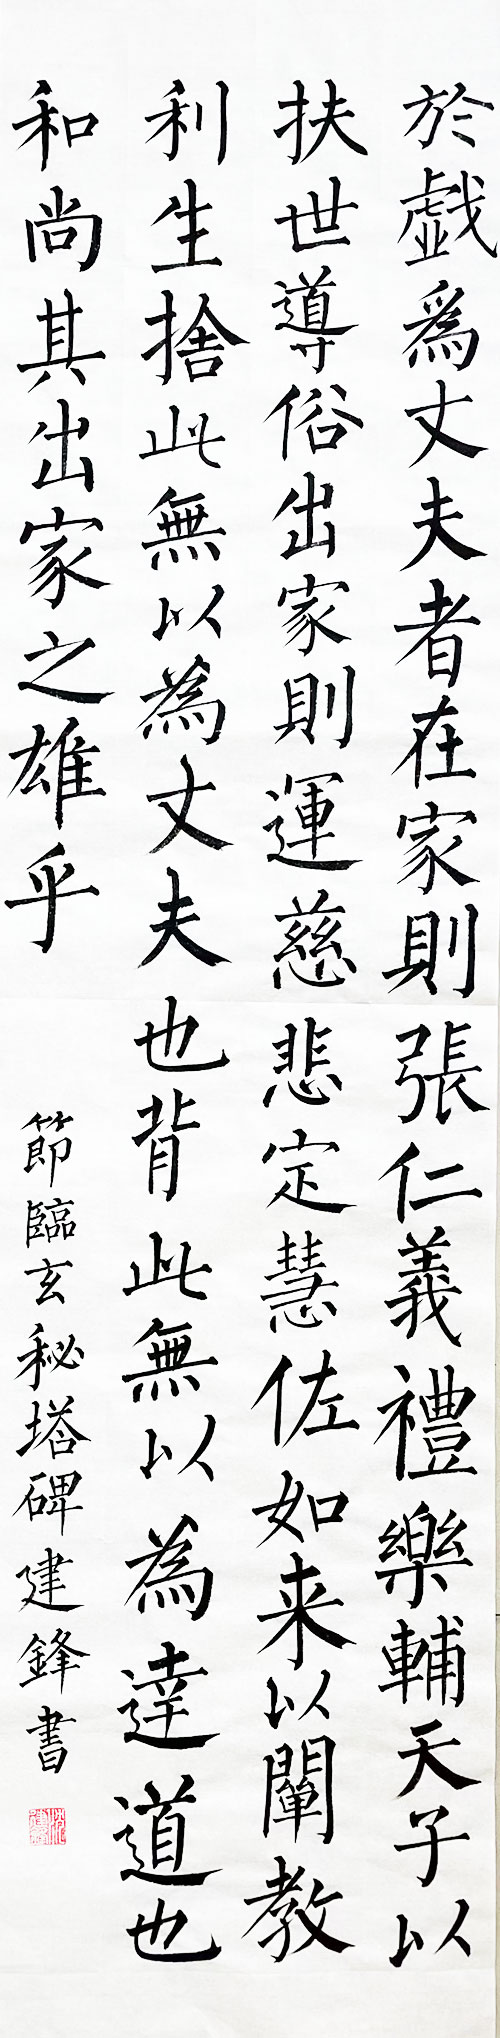 於戯為丈夫者在家則張仁義禮樂輔天子以
扶世導俗出家則運慈悲定慧佐如来以闡教
利生捨此無以為丈夫也背此無以為達道也
和尚其出家之雄乎
節臨玄秘塔碑建鋒書